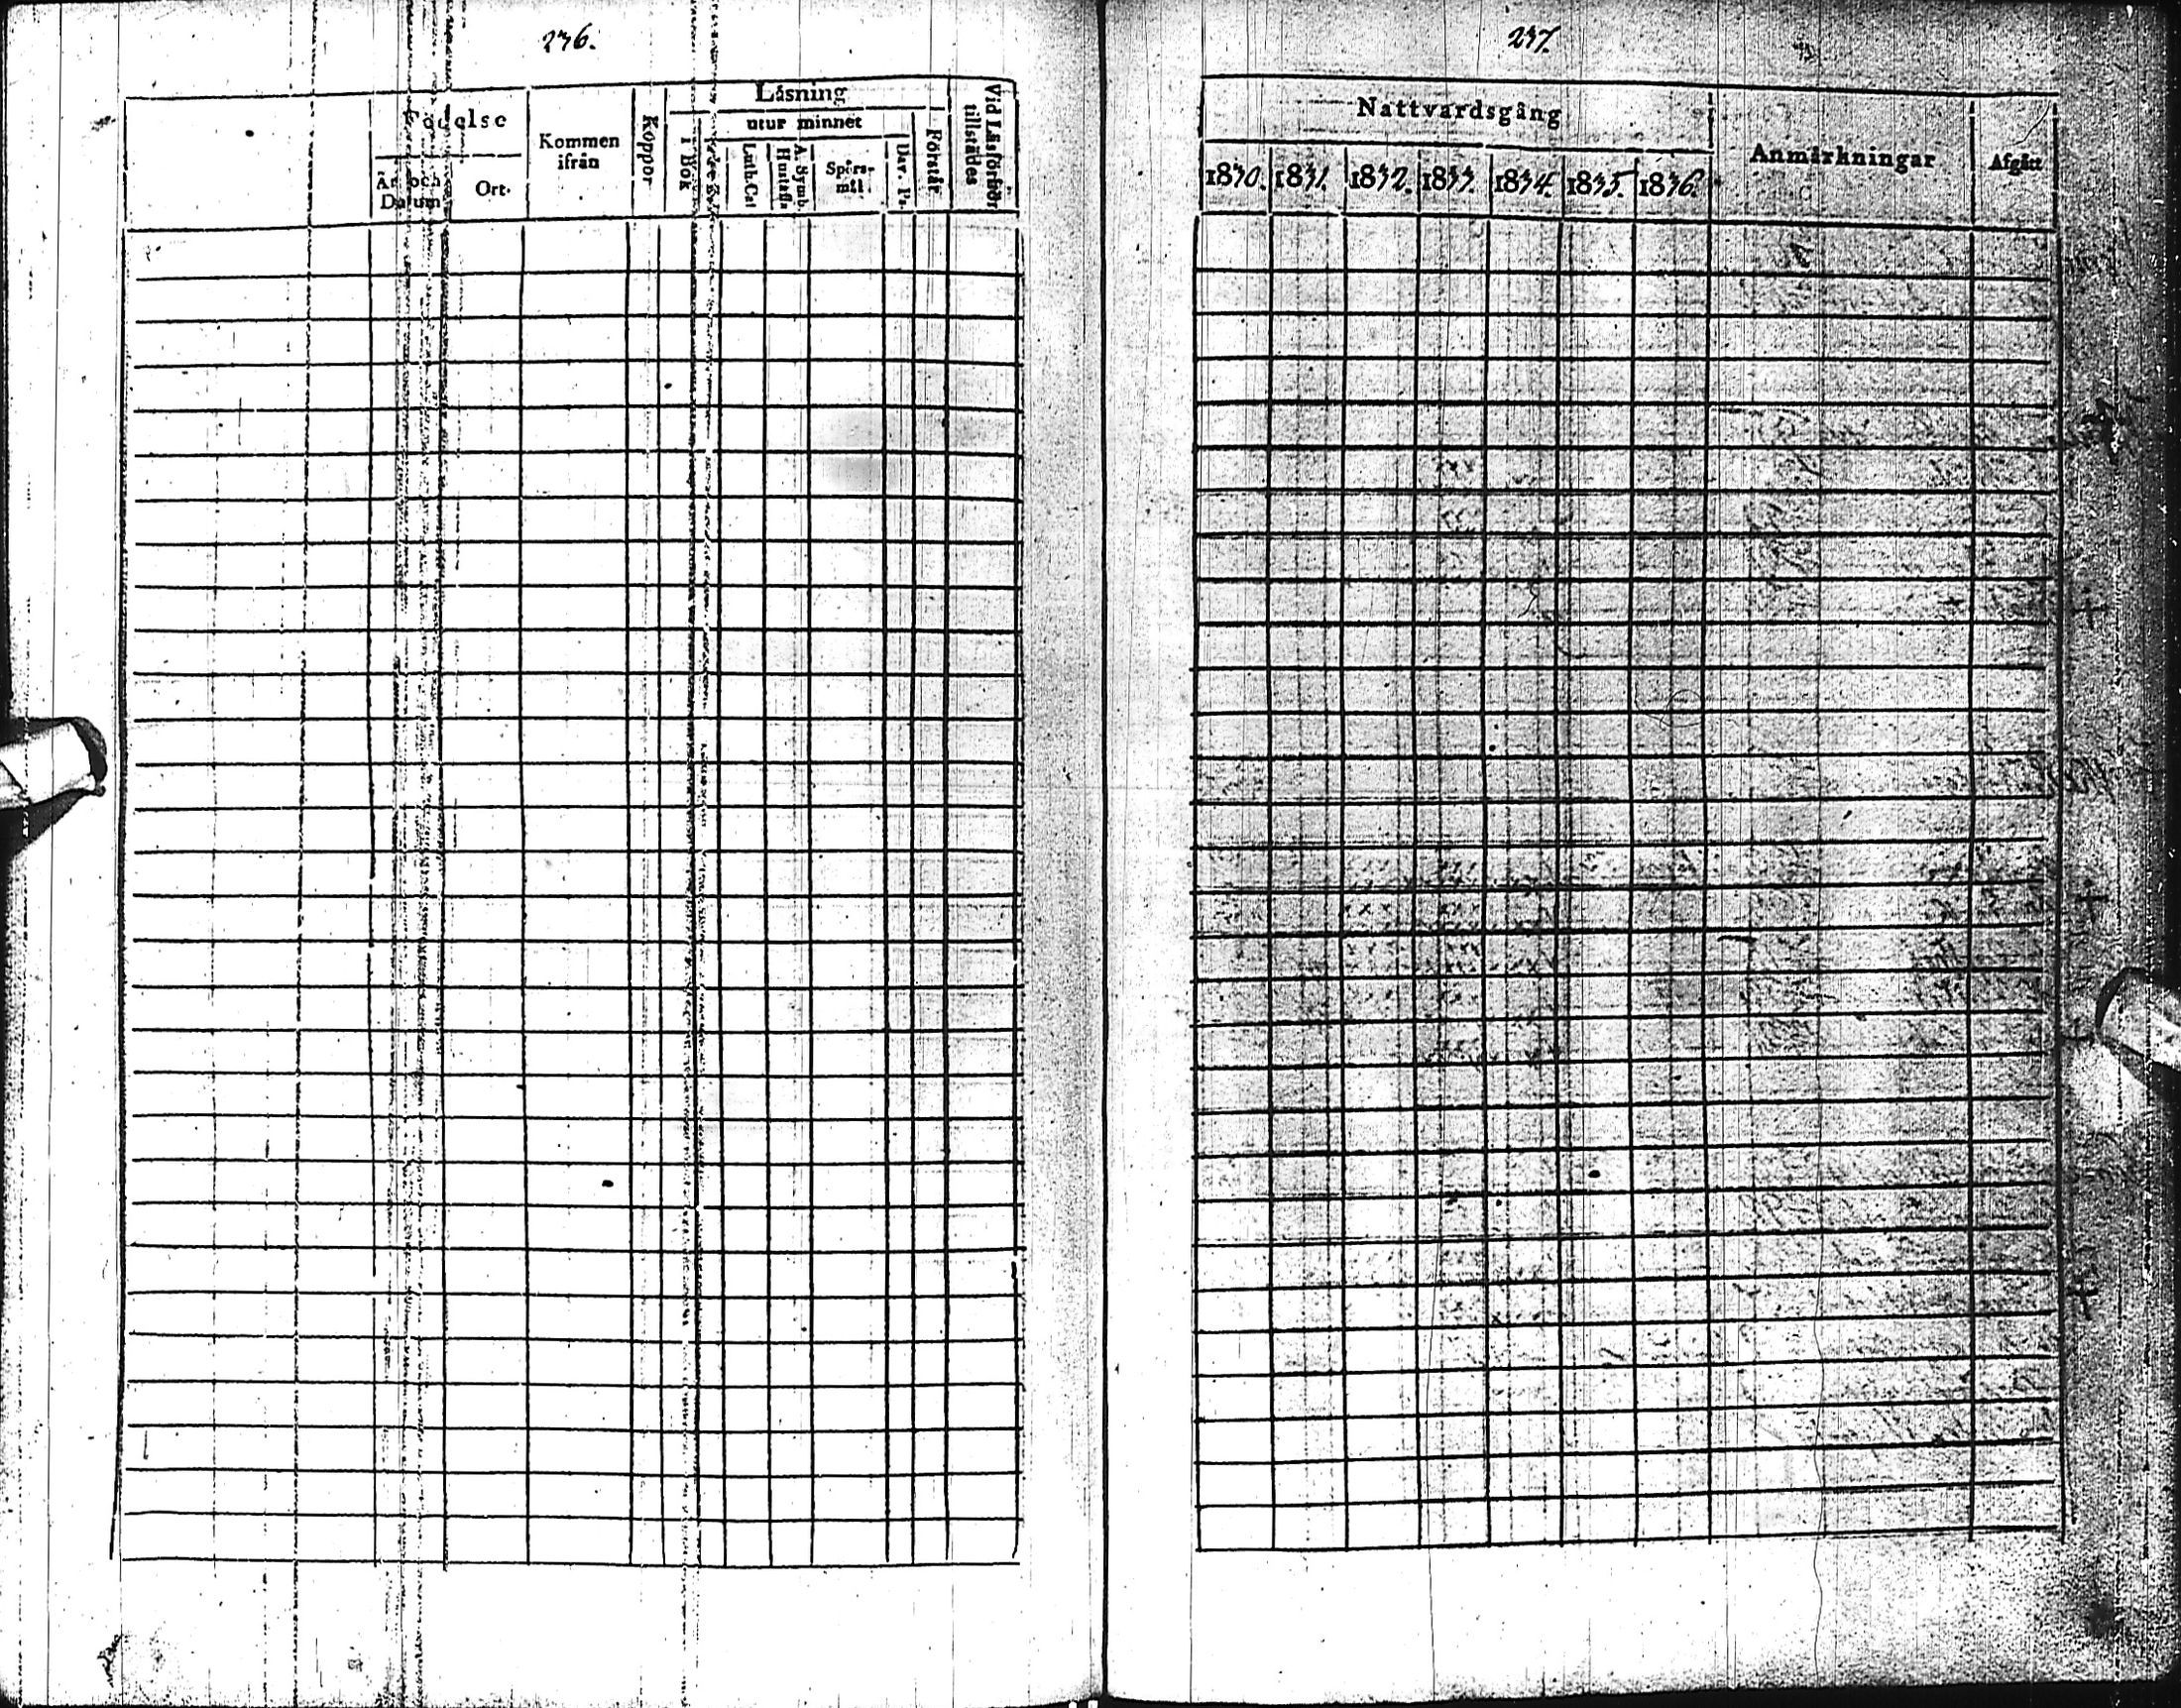 236.
Födelse
År och Datum
Ort.
Kommen ifrån
Koppor
Läsning
I Bok
utur minnet
Luth. Cat
A. Symb. Hustafla
Spörsmål
Dav. Ps.
Förstår
Vid Läsförhör tillstädes
237.
Nattvardsgång
Anmärkningar
Afgått
1830. 1831. 1832. 1833. 1834. 1835. 1836.